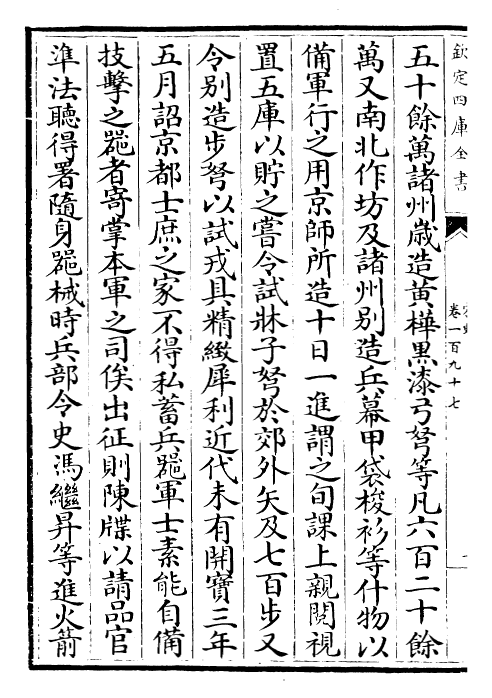 欽定四庫全書
卷一百九十七
五十餘萬諸州歳造黄樺黒漆弓弩等凡六百二十餘
萬又南北作坊及諸州别造兵幕甲袋梭衫等什物以
備軍行之用京師所造十日一進謂之旬課上親閲視
置五庫以貯之嘗令試牀子弩於郊外矢及七百步又
令别造步弩以試戎具精緻犀利近代未有開寶三年
五月詔京都士庶之家不得私蓄兵噐軍士素能自備
技擊之噐者寄掌本軍之司俟出征則陳牒以請品官
準法聽得署隨身噐械時兵部令史馮繼昇等進火箭